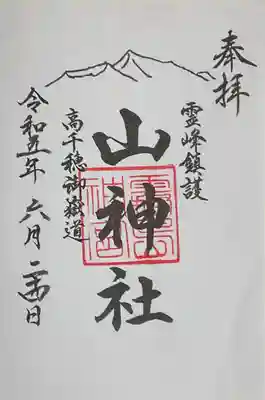 奉拝
霊峰鎮護
山神社
高千穂御嶽道
令和五年 六月 二十四日